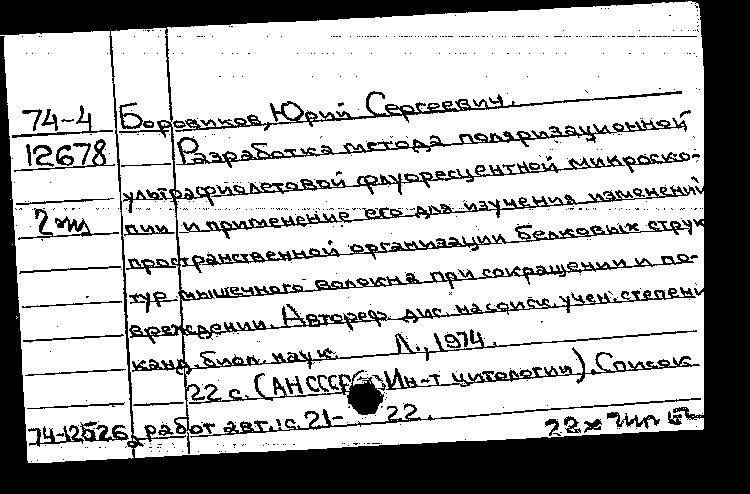 74-4 Боровиков, Юрий Сергеевич.
12678 Разработка метода поляризационной
ультрафиолетовой флуоресцентной микроско-
2 пии и применение его для изучения изменений
пространственной организации белковых струк
тур мышечного волокна при сокращении и по-
вреждении. Автореф. дис. на соиск. учен. степени
канд. биол. наук. Л., 1974.
22 с. (АН СССР. Ин-т цитологии). Список
74-12526 работ авт.: с. 21-22.